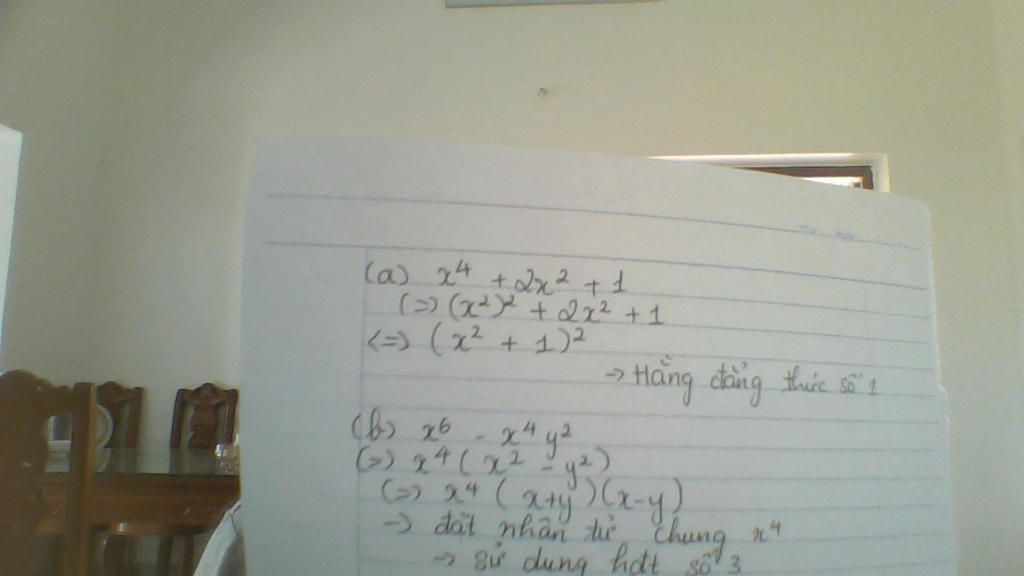 (a) x⁴ + 2x² + 1
(=) (x²)² + 2x² + 1
<=> (x² + 1)²
→ Hằng đẳng thức số 1
(b) x⁶ - x⁴y²
(=) x⁴(x² - y²)
(=) x⁴(x+y)(x-y)
→ đặt nhân tử chung x⁴
→ sử dụng hđt số 3